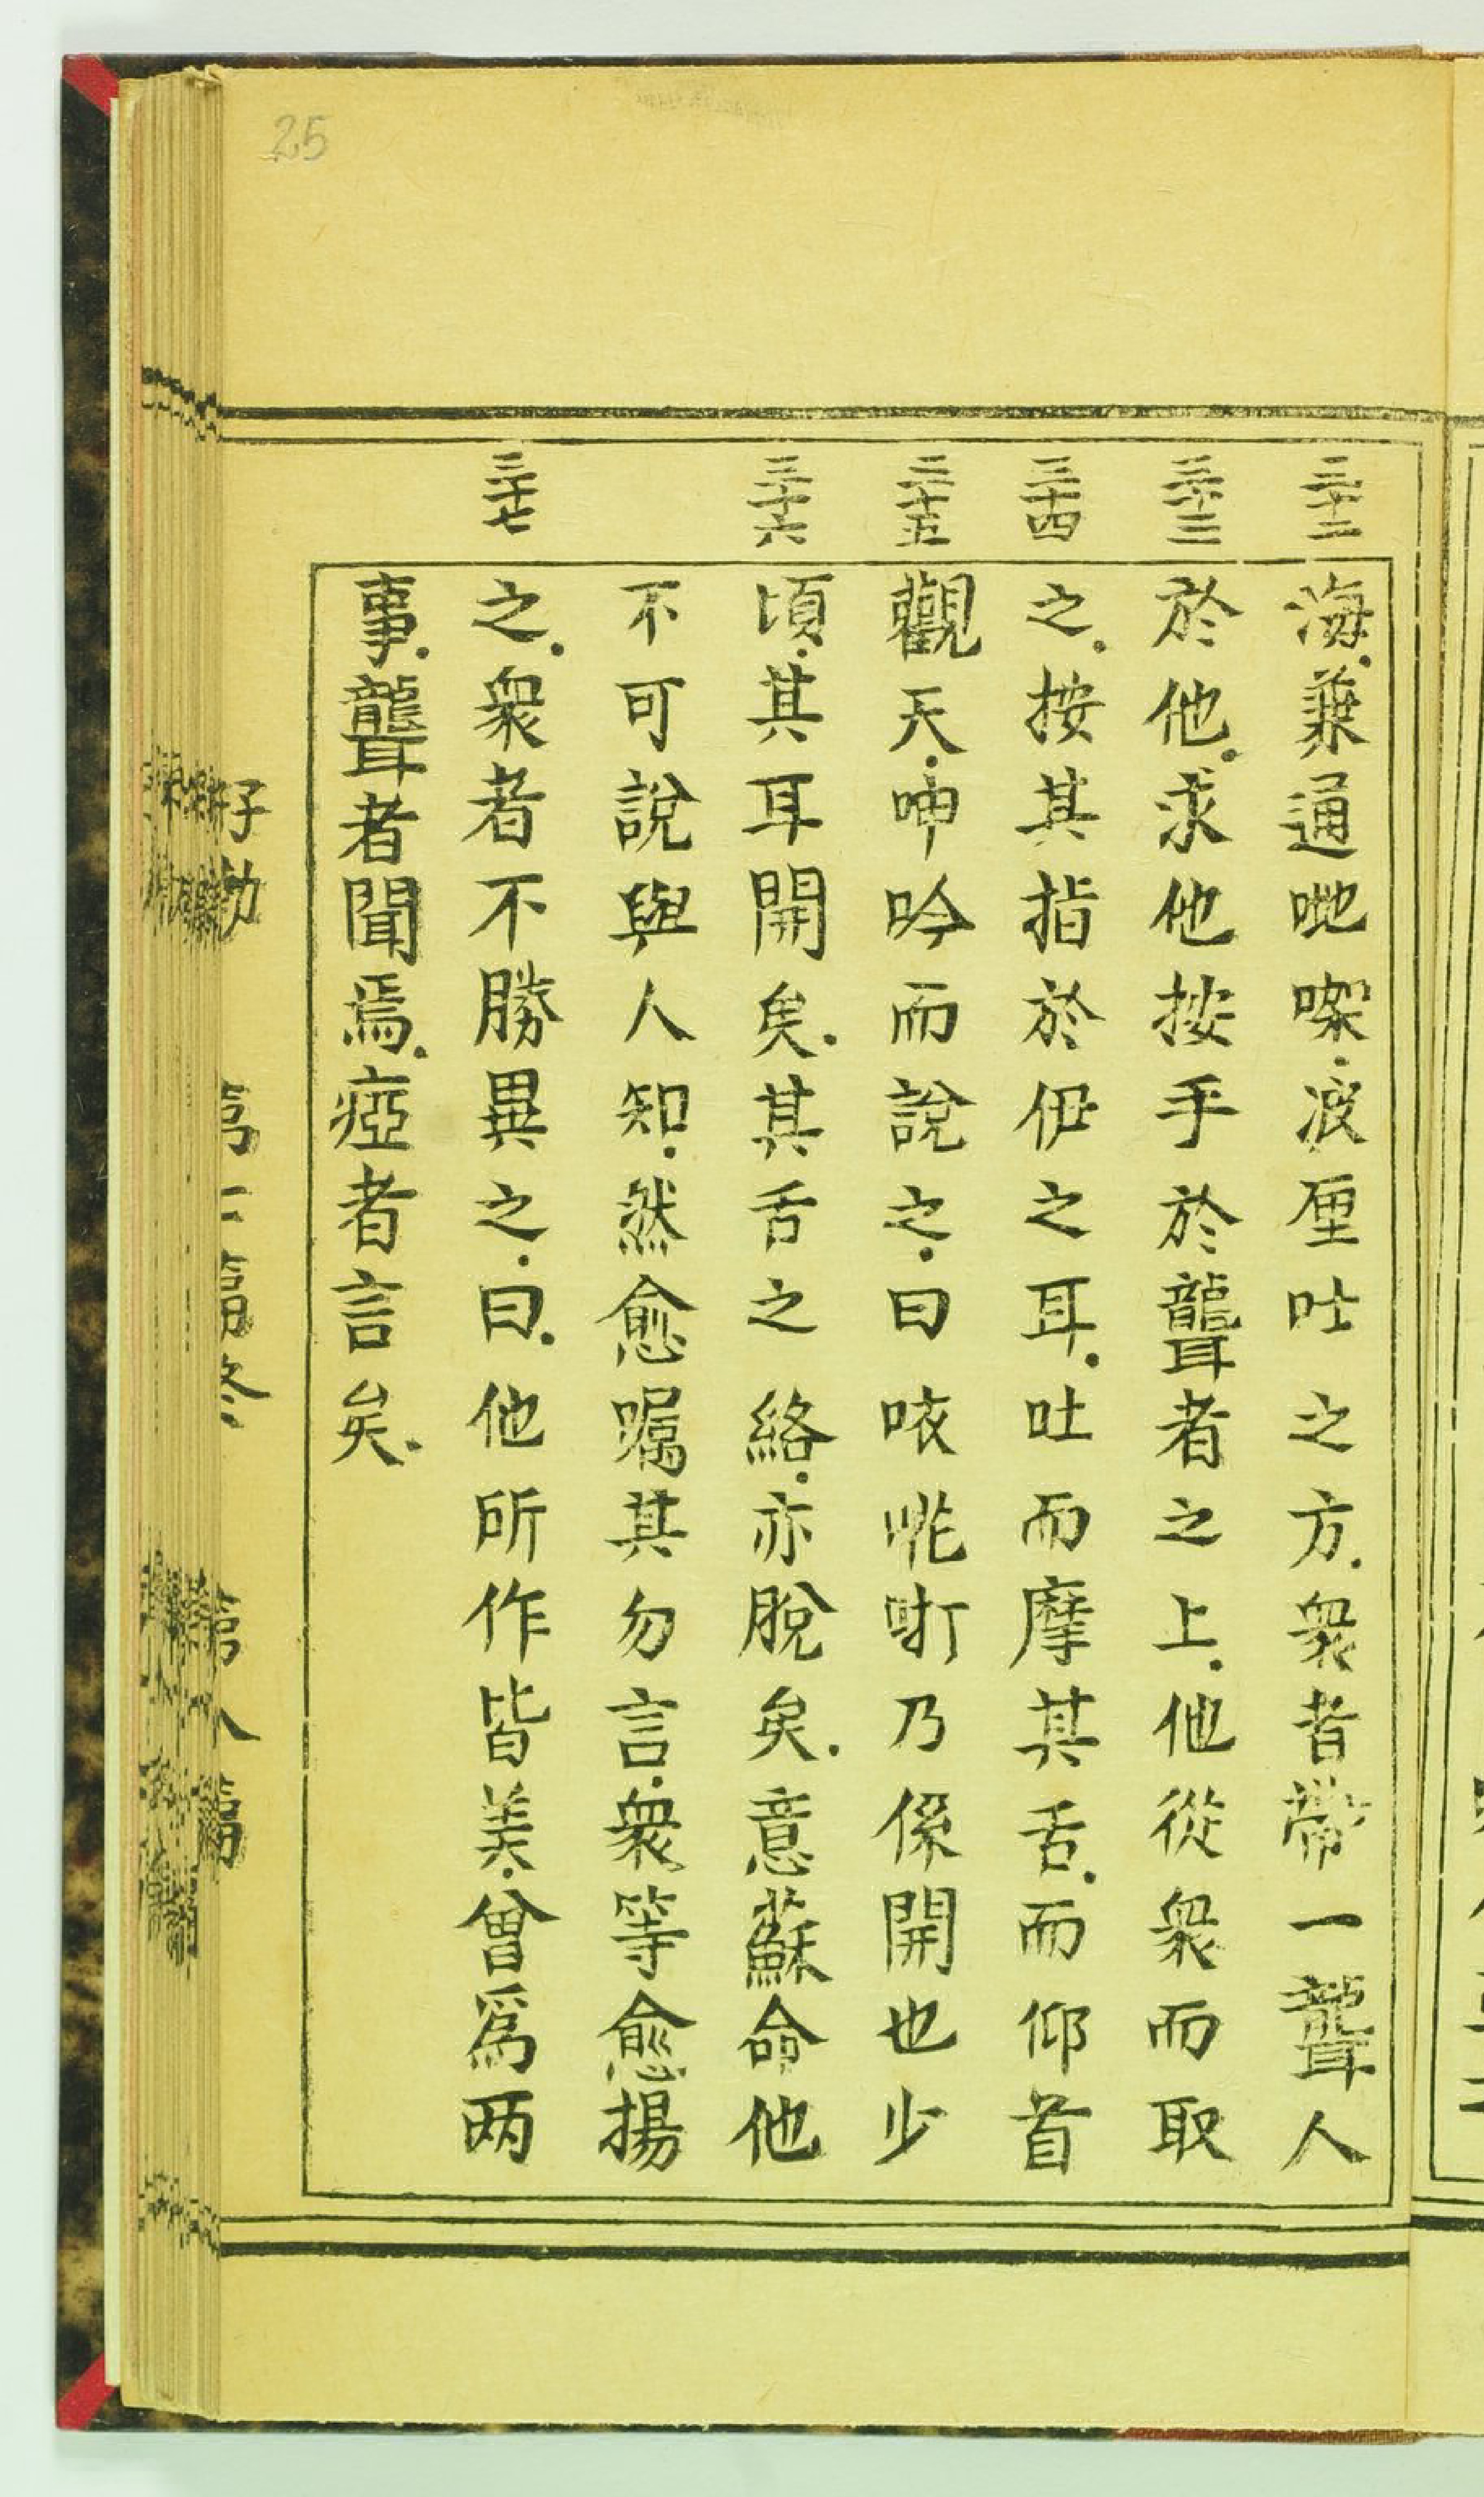 25
三十二
海.兼通哋㗎.波厘吐之方.衆者帶一聾人
三十三
於他.求他按手於聾者之上.他從衆而取
三十四
之.按其指於伊之耳.吐而摩其舌.而仰首
三十五
觀天.呻吟而說之.曰咴㖇㖕乃係開也少
三十六
頃.其耳開矣.其舌之絡.亦脫矣.意蘇命他
不可說與人知.然愈囑其勿言.衆等愈揚
三十七
之.衆者不勝異之.曰.他所作皆美.曾爲两
事.聾者聞焉.瘂者言矣.